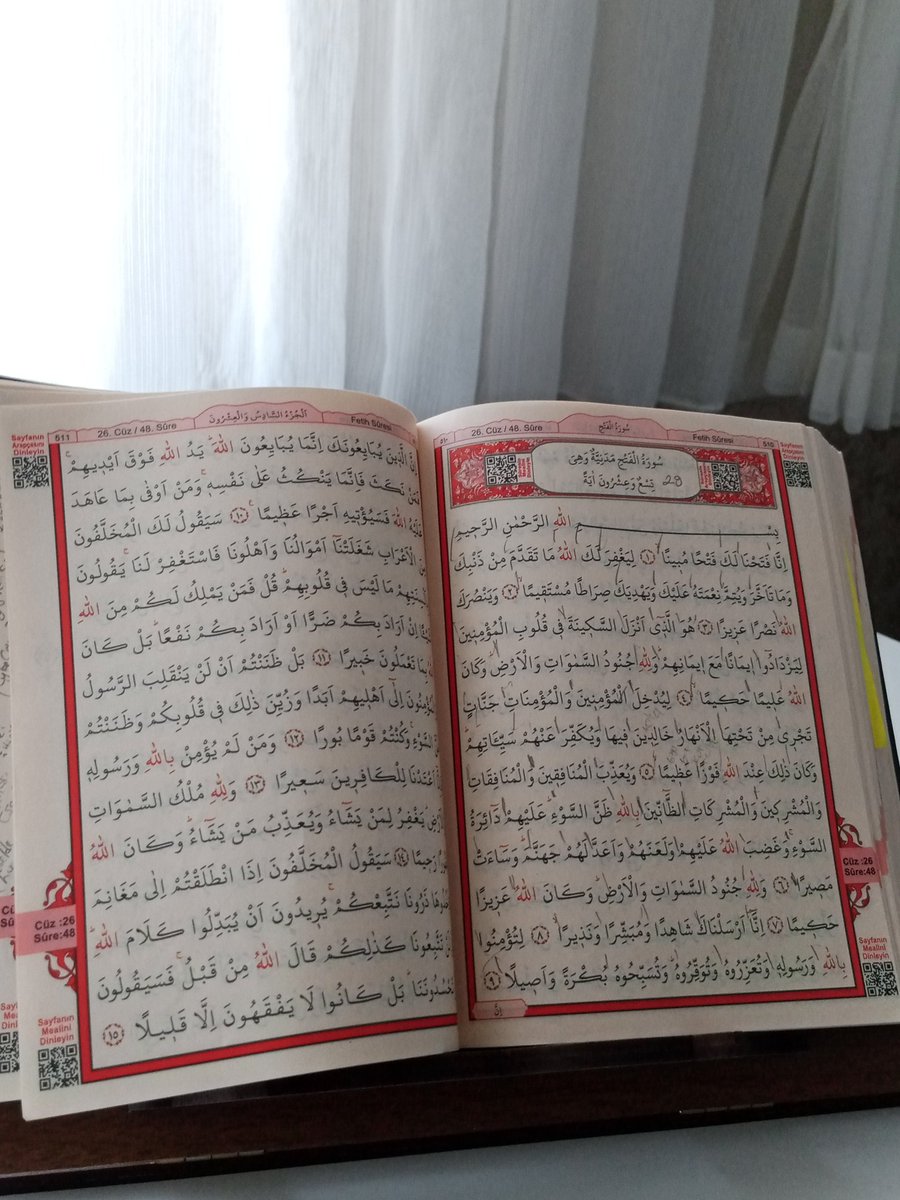 26. Cüz / 48. Sûre
سُورَةُ الْفَتْحِ
Fetih Sûresi
510
Sayfanın
Arapçasını
Dinleyin
سُورَةُ الْفَتْحِ مَدَنِيَّةٌ وَهِيَ
تِسْعٌ وَعِشْرُونَ اٰيَةً
بِسْــــــمِ اللّٰهِ الرَّحْمٰنِ الرَّحٖيمِ
اِنَّا فَتَحْنَا لَكَ فَتْحًا مُبٖينًا ﴿١﴾ لِيَغْفِرَ لَكَ اللّٰهُ مَا تَقَدَّمَ مِنْ ذَنْبِكَ
وَمَا تَاَخَّرَ وَيُتِمَّ نِعْمَتَهُ عَلَيْكَ وَيَهْدِيَكَ صِرَاطًا مُسْتَقٖيمًا ﴿٢﴾ وَيَنْصُرَكَ
اللّٰهُ نَصْرًا عَزٖيزًا ﴿٣﴾ هُوَ الَّذٖٓي اَنْزَلَ السَّكٖينَةَ فٖي قُلُوبِ الْمُؤْمِنٖينَ
لِيَزْدَادُٓوا اٖيمَانًا مَعَ اٖيمَانِهِمْ وَلِلّٰهِ جُنُودُ السَّمٰوَاتِ وَالْاَرْضِ وَكَانَ
اللّٰهُ عَلٖيمًا حَكٖيمًا ﴿٤﴾ لِيُدْخِلَ الْمُؤْمِنٖينَ وَالْمُؤْمِنَاتِ جَنَّاتٍ
تَجْرٖي مِنْ تَحْتِهَا الْاَنْهَارُ خَالِدٖينَ فٖيهَا وَيُكَفِّرَ عَنْهُمْ سَيِّـَٔاتِهِمْ
وَكَانَ ذٰلِكَ عِنْدَ اللّٰهِ فَوْزًا عَظٖيمًا ﴿٥﴾ وَيُعَذِّبَ الْمُنَافِقٖينَ وَالْمُنَافِقَاتِ
وَالْمُشْرِكٖينَ وَالْمُشْرِكَاتِ الظَّٓانّٖينَ بِاللّٰهِ ظَنَّ السَّوْءِ عَلَيْهِمْ دَٓائِرَةُ
السَّوْءِ وَغَضِبَ اللّٰهُ عَلَيْهِمْ وَلَعَنَهُمْ وَاَعَدَّ لَهُمْ جَهَنَّمَ وَسَٓاءَتْ
مَصٖيرًا ﴿٦﴾ وَلِلّٰهِ جُنُودُ السَّمٰوَاتِ وَالْاَرْضِ وَكَانَ اللّٰهُ عَزٖيزًا
حَكٖيمًا ﴿٧﴾ اِنَّٓا اَرْسَلْنَاكَ شَاهِدًا وَمُبَشِّرًا وَنَذٖيرًا ﴿٨﴾ لِتُؤْمِنُوا
بِاللّٰهِ وَرَسُولِهٖ وَتُعَزِّرُوهُ وَتُوَقِّرُوهُ وَتُسَبِّحُوهُ بُكْرَةً وَاَصٖيلًا ﴿٩﴾
اِنَّ
Cüz :26
Sûre:48
Sayfanın
Mealini
Dinleyin
511
26. Cüz / 48. Sûre
اَلْجُزْءُ السَّادِسُ وَالْعِشْرُونَ
Fetih Sûresi
Sayfanın
Arapçasını
Dinleyin
اِنَّ الَّذٖينَ يُبَايِعُونَكَ اِنَّمَا يُبَايِعُونَ اللّٰهَ يَدُ اللّٰهِ فَوْقَ اَيْدٖيهِمْ
نَكَثَ فَاِنَّمَا يَنْكُثُ عَلٰى نَفْسِهٖ وَمَنْ اَوْفٰى بِمَا عَاهَدَ
اللّٰهَ فَسَيُؤْتٖيهِ اَجْرًا عَظٖيمًا ﴿١٠﴾ سَيَقُولُ لَكَ الْمُخَلَّفُونَ
الْاَعْرَابِ شَغَلَتْنَٓا اَمْوَالُنَا وَاَهْلُونَا فَاسْتَغْفِرْ لَنَا يَقُولُونَ
مَا لَيْسَ فٖي قُلُوبِهِمْ قُلْ فَمَنْ يَمْلِكُ لَكُمْ مِنَ اللّٰهِ
اِنْ اَرَادَ بِكُمْ ضَرًّا اَوْ اَرَادَ بِكُمْ نَفْعًا بَلْ كَانَ
بِمَا تَعْمَلُونَ خَبٖيرًا ﴿١١﴾ بَلْ ظَنَنْتُمْ اَنْ لَنْ يَنْقَلِبَ الرَّسُولُ
اِلٰٓى اَهْلٖيهِمْ اَبَدًا وَزُيِّنَ ذٰلِكَ فٖي قُلُوبِكُمْ وَظَنَنْتُمْ
السَّوْءِ وَكُنْتُمْ قَوْمًا بُورًا ﴿١٢﴾ وَمَنْ لَمْ يُؤْمِنْ بِاللّٰهِ وَرَسُولِهٖ
اَعْتَدْنَا لِلْكَافِرٖينَ سَعٖيرًا ﴿١٣﴾ وَلِلّٰهِ مُلْكُ السَّمٰوَاتِ
يَغْفِرُ لِمَنْ يَشَٓاءُ وَيُعَذِّبُ مَنْ يَشَٓاءُ وَكَانَ اللّٰهُ
رَحٖيمًا ﴿١٤﴾ سَيَقُولُ الْمُخَلَّفُونَ اِذَا انْطَلَقْتُمْ اِلٰى مَغَانِمَ
ذَرُونَا نَتَّبِعْكُمْ يُرٖيدُونَ اَنْ يُبَدِّلُوا كَلَامَ اللّٰهِ
تَتَّبِعُونَا كَذٰلِكُمْ قَالَ اللّٰهُ مِنْ قَبْلُ فَسَيَقُولُونَ
تَحْسُدُونَنَا بَلْ كَانُوا لَا يَفْقَهُونَ اِلَّا قَلٖيلًا ﴿١٥﴾
Cüz :26
Sûre:48
Sayfanın
Mealini
Dinleyin